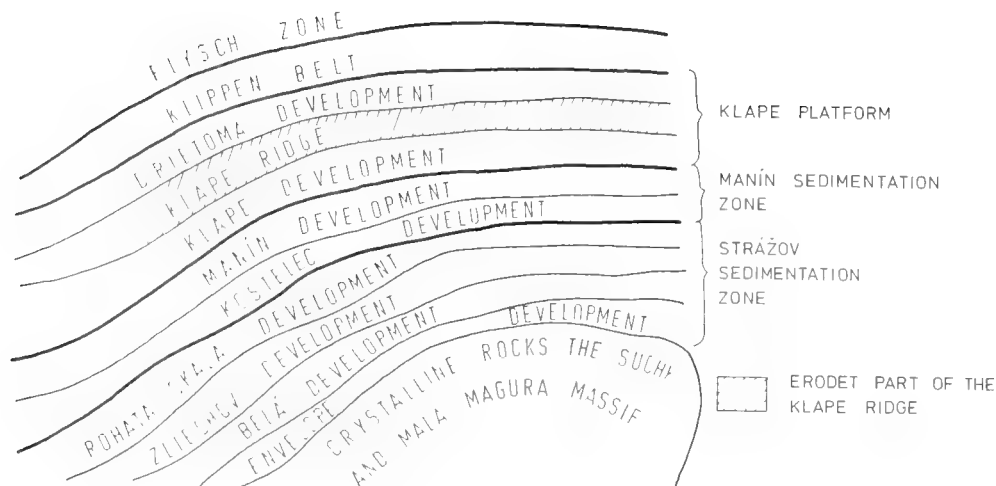 FLYSCH ZONE
KLIPPEN BELT
UPILTOMA DEVELOPMENT
KLAPE RIDGE
KLAPE DEVELOPMENT
MANÍN DEVELOPMENT
KOSTELEC DEVELOPMENT
ROHATÁ SKALA DEVELOPMENT
ZLIECHOV DEVELOPMENT
BELÁ DEVELOPMENT
ENVELOPE DEVELOPMENT
CRYSTALLINE ROCKS THE
AND MALA MAGURA MASSIF
KLAPE PLATFORM
MANÍN SEDIMENTATION
ZONE
STRÁŽOV
SEDIMENTATION
ZONE
ERODET PART OF THE
KLAPE RIDGE